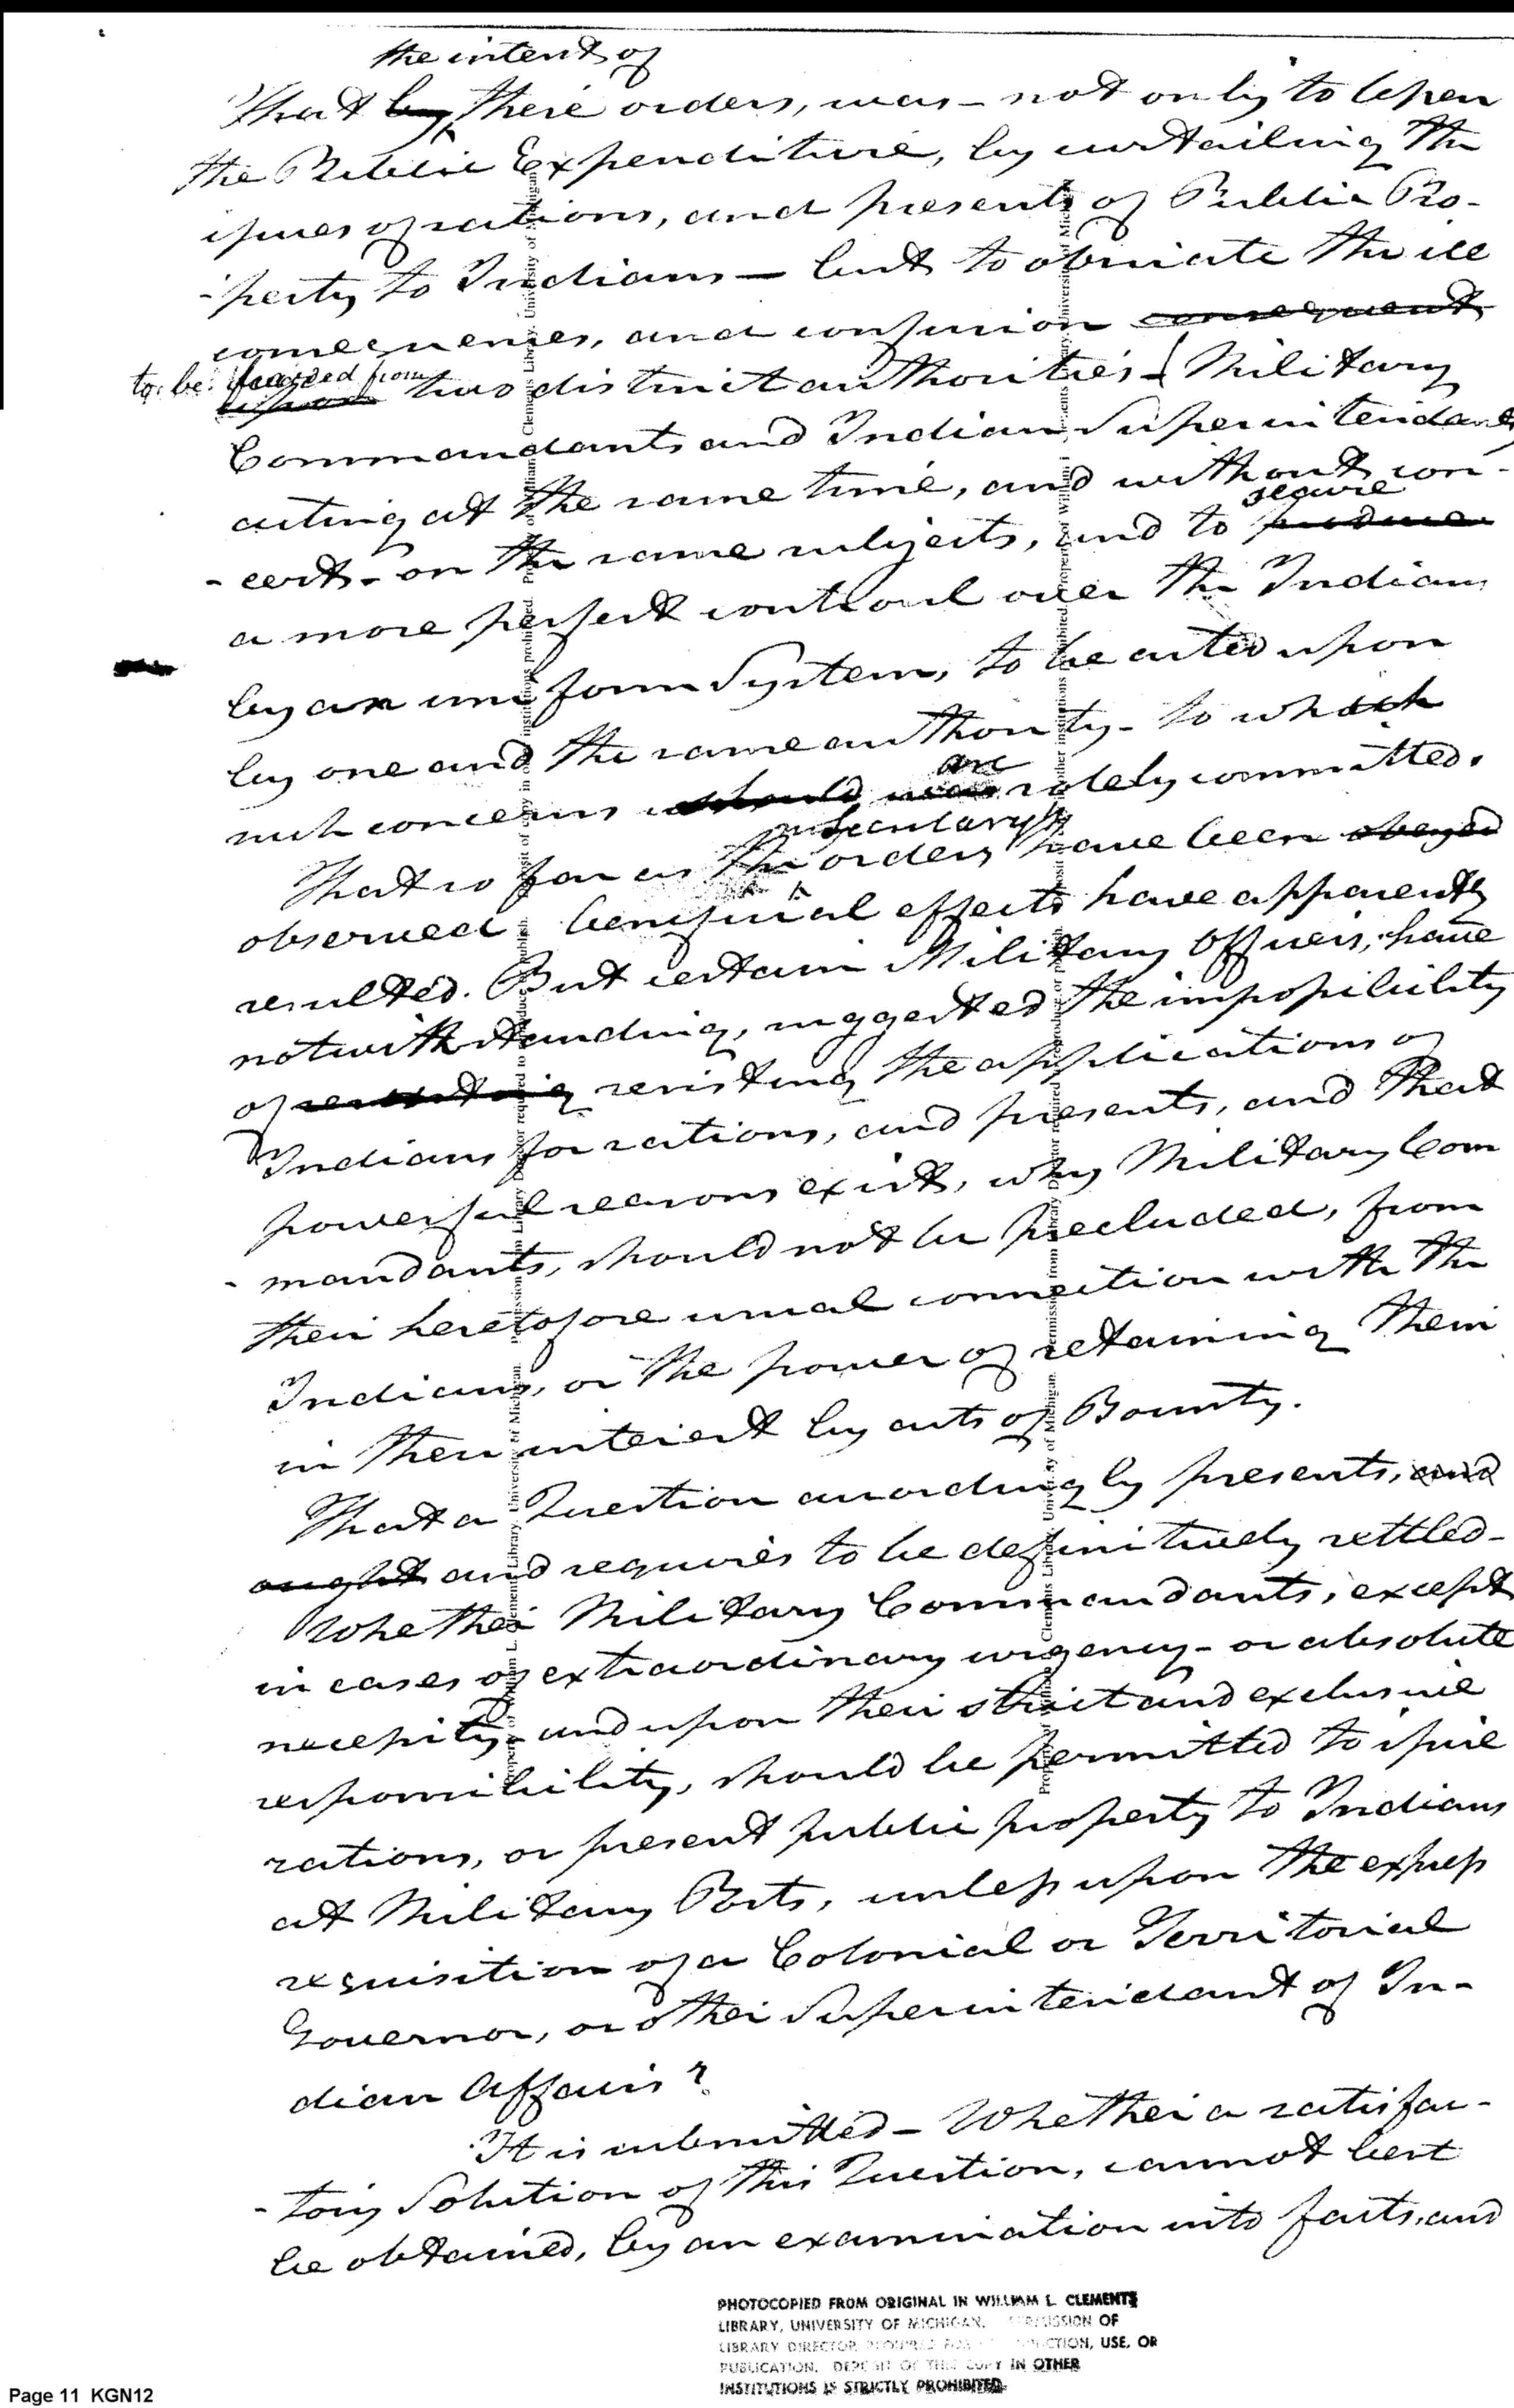 the intent of
That by these orders, was - not only to lessen
the Public Expenditure, by curtailing the
issues of rations, and presents of Public Pro-
-perty to Indians - but to obviate the ill
consequences, and confusion consequent
to be feared from upon two distinct authorities - Military
Commandants and Indian Superintendants
acting at the same time, and without con-
secure
-cert - on the same subjects, and to produce
a more perfect controul over the Indians
by an uniform System, to be acted upon
by one and the same authority - to which
are
such concerns should solely committed.
Secretary's
That so far as the orders have been obeyed
observed beneficial effects have apparently
resulted. But certain Military Officers, have
notwithstanding, suggested the impossibility
of resisting the applications of
Indians for rations, and presents, and that
powerful reasons exist, why Military Com
-mandants, should not be precluded, from
their heretofore usual connection with the
Indians, or the power of retaining them
in their interest by acts of Bounty.
That a Question accordingly presents, and
ought and requires to be definitively settled -
Whether Military Commandants, except
in cases of extraordinary urgency - or absolute
necessity - and upon their strict and exclusive
responsibility, should be permitted to issue
rations, or present public property to Indians
at Military Posts, unless upon the express
requisition of a Colonial or Territorial
Governor, or other Superintendant of In-
dian Affairs?
It is submitted - Whether a satisfac-
-tory Solution of this Question, cannot best
be obtained, by an examination into facts, and
PHOTOCOPIED FROM ORIGINAL IN WILLIAM L. CLEMENTS
LIBRARY, UNIVERSITY OF MICHIGAN. PERMISSION OF
LIBRARY DIRECTOR REQUIRED FOR REPRODUCTION, USE, OR
PUBLICATION. DEPOSIT OF THIS COPY IN OTHER
INSTITUTIONS IS STRICTLY PROHIBITED.
Page 11 KGN12